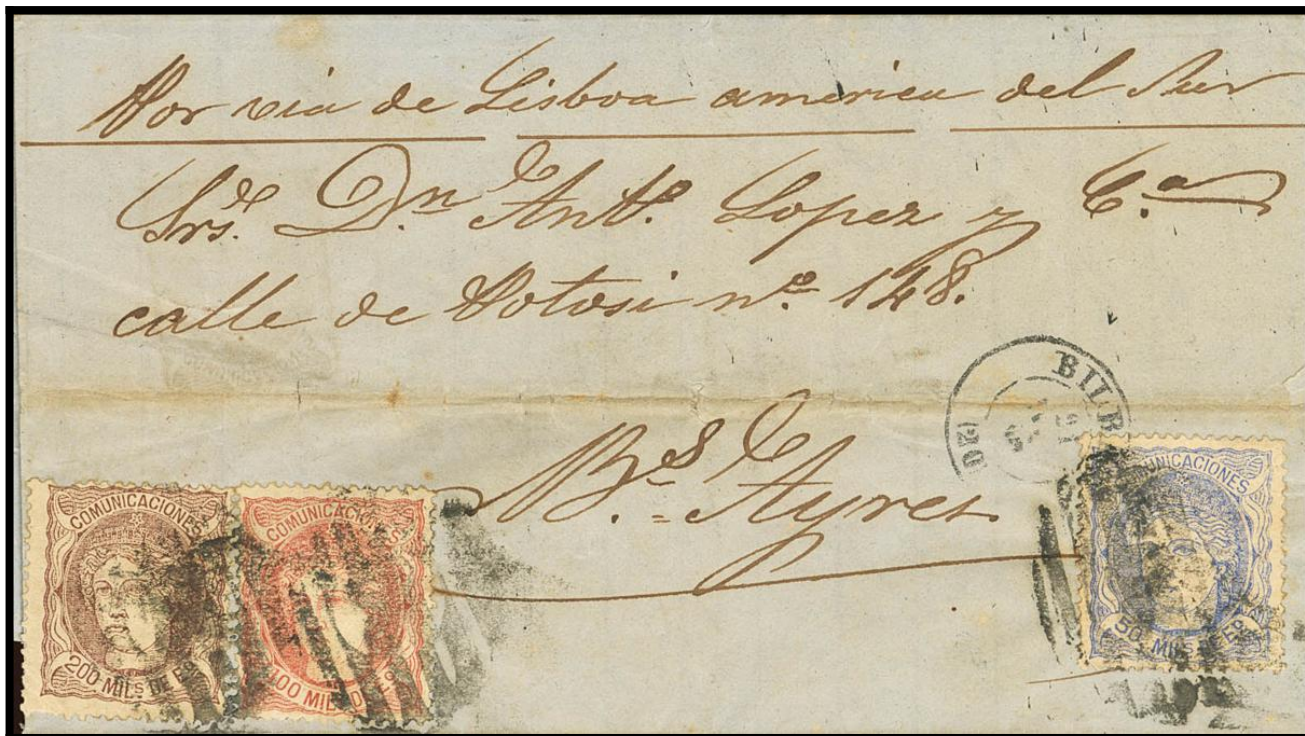 Por via de Lisboa america del Sur
Srs. Dn. Anto. Lopez y Ca.
calle de Potosi no. 148.
BILB
Bs. = Ayres
COMUNICACIONES
200 MILS DE ES
COMUNICACIONES
400 MIL
COMUNICACIONES
50 MILS DE ES